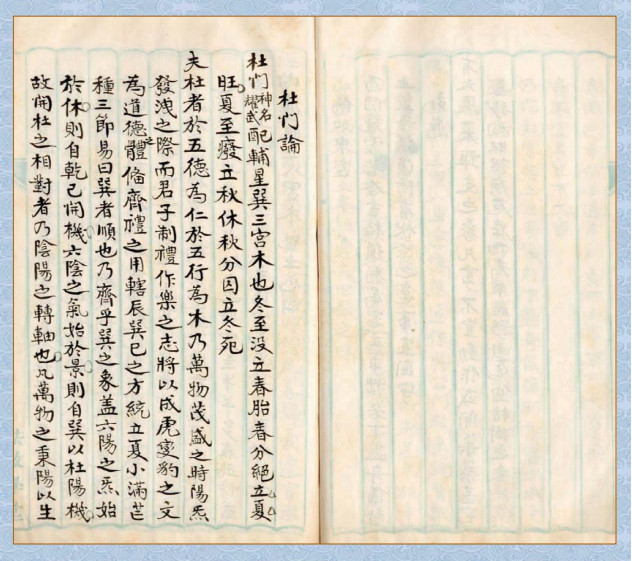 杜门論
杜门神名耀武配輔星巽三宮木也冬至没立春胎春分絕立夏
旺夏至癈立秋休秋分囚立冬死
夫杜者於五德為仁於五行為木乃萬物茂盛之時陽炁
發洩之際而君子制禮作樂之志將以成虎變豹之文
為道德之體偹齊禮之用轄辰巽巳之方統立夏小滿芒
種三節易曰巽者順也乃齊乎巽之象盖六陽之炁始
於休則自乾已開機六陰之氣始於景則自巽以杜陽機
故開杜之相對者乃陰陽之轉軸也凡萬物之秉陽以生